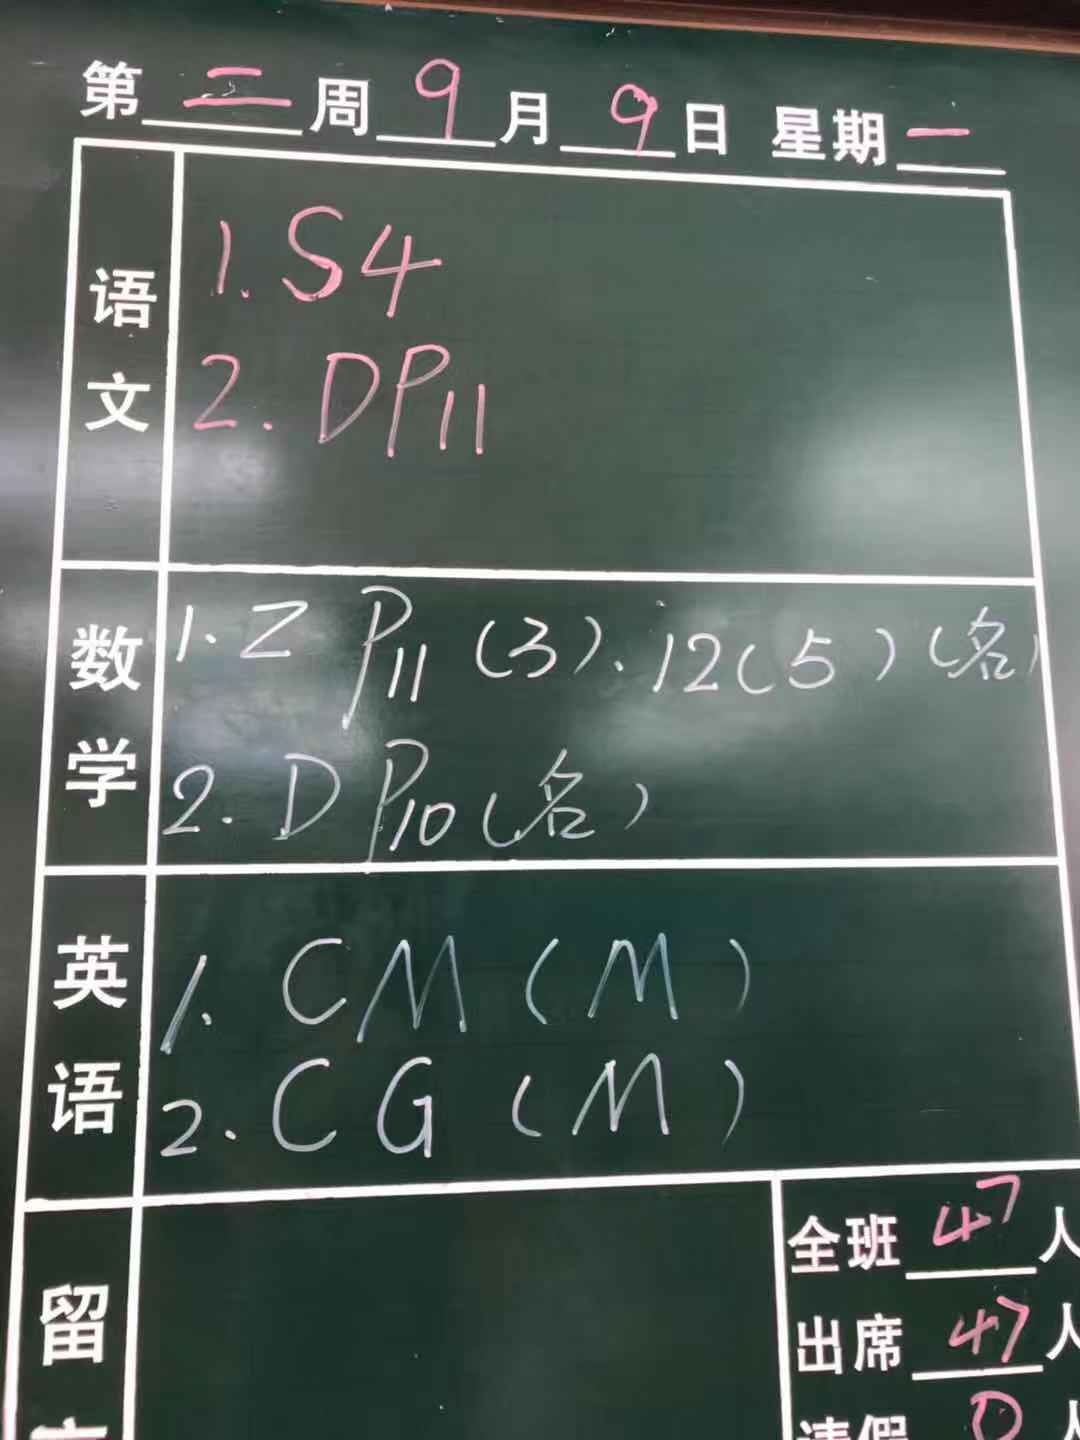 第二周9月9日 星期一
语文
1. S4
2. DP11
数学
1. Z P11 (3). 12(5) (名)
2. D P10 (名)
英语
1. CM (M)
2. CG (M)
留
全班 47 人
出席 47 人
请假 0 人